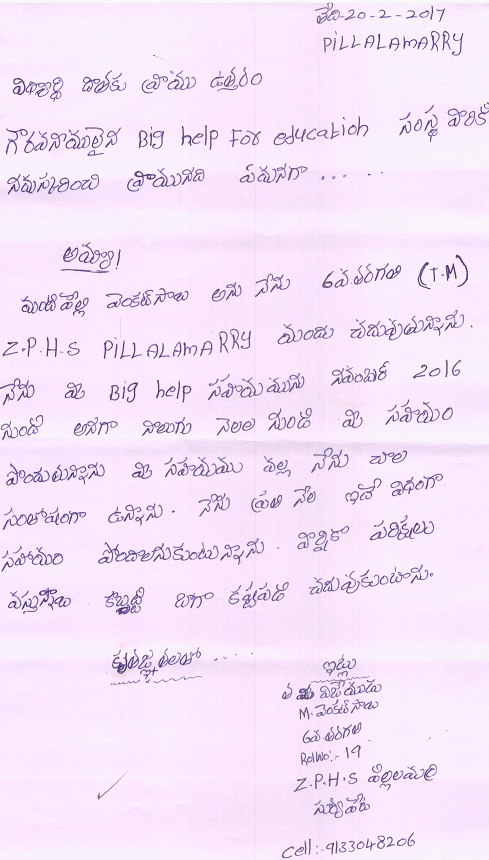 తేది-20-2-2017
PILLALAMARRY
విద్యార్థి దాతకు వ్రాయు ఉత్తరం
గౌరవనీయులైన Big help For education సంస్థ వారికి
నమస్కరించి వ్రాయునది ఏమనగా ... ..
అమ్మా!
వెంకట్ సాయి అను నేను 6వ.తరగతి (T.M)
Z.P.H.S PILLALAMARRY నందు చదువుచున్నాను.
నేను మీ Big help సహాయమును నవంబర్ 2016
నుండి అనగా నాలుగు నెలల నుండి మీ సహాయం
పొందుతున్నాను మీ సహాయము వల్ల నేను చాల
సంతోషంగా ఉన్నాను. నేను ప్రతి నెల ఇదే విధంగా
సహాయం పొందాలనుకుంటున్నాను. వార్షిక పరీక్షలు
వస్తున్నాయి కాబట్టి బాగా కష్టపడి చదువుకుంటాను.
కృతజ్ఞతలతో ....
ఇట్లు
M. వెంకట్ సాయి
6వ.తరగతి
RollNo:- 19
Z.P.H.S పిల్లలమర్రి
సూర్యాపేట
Cell:-9133048206